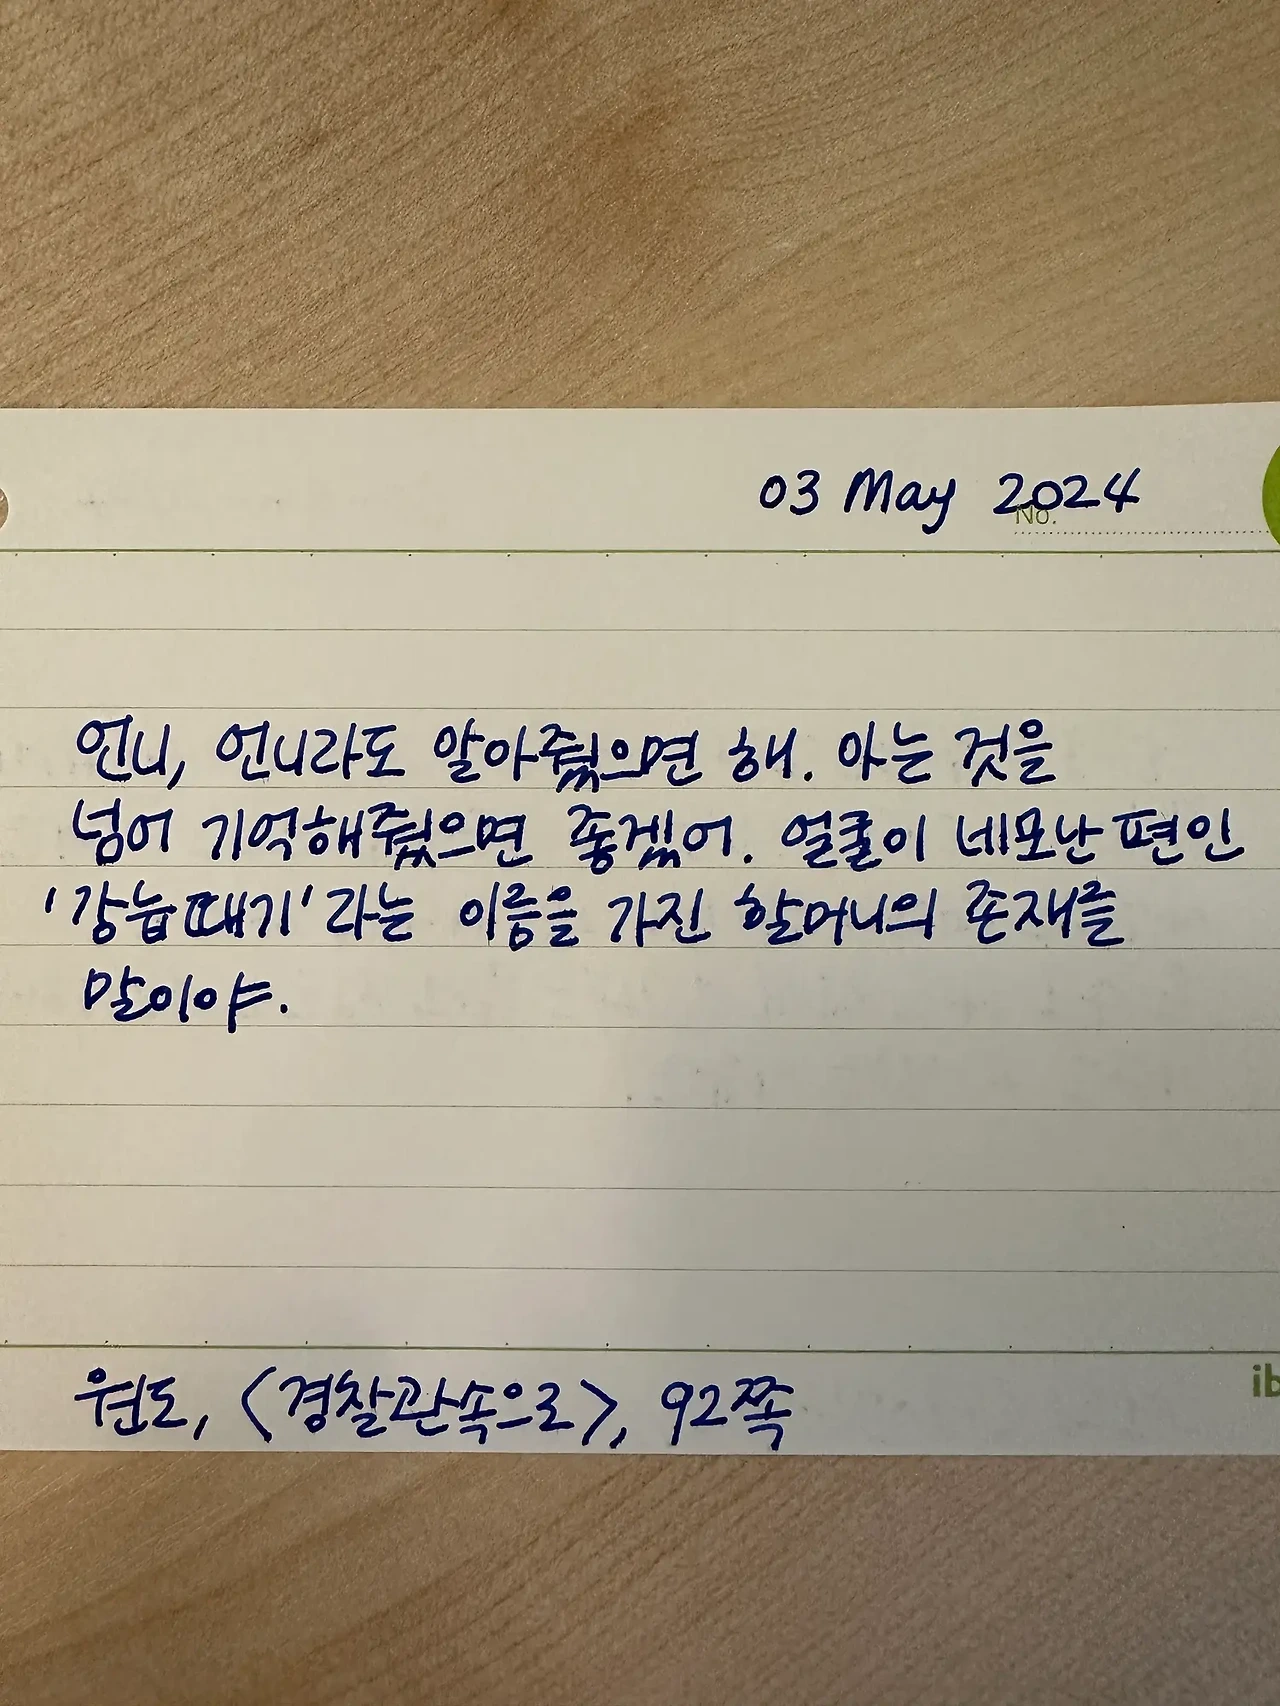 03 May 2024
No.
언니, 언니라도 알아줬으면 해. 아는 것을
넘어 기억해줬으면 좋겠어. 얼굴이 네모난 편인
'강늡때기'라는 이름을 가진 할머니의 존재를
말이야.
원도, <경찰관속으로>, 92쪽
ib